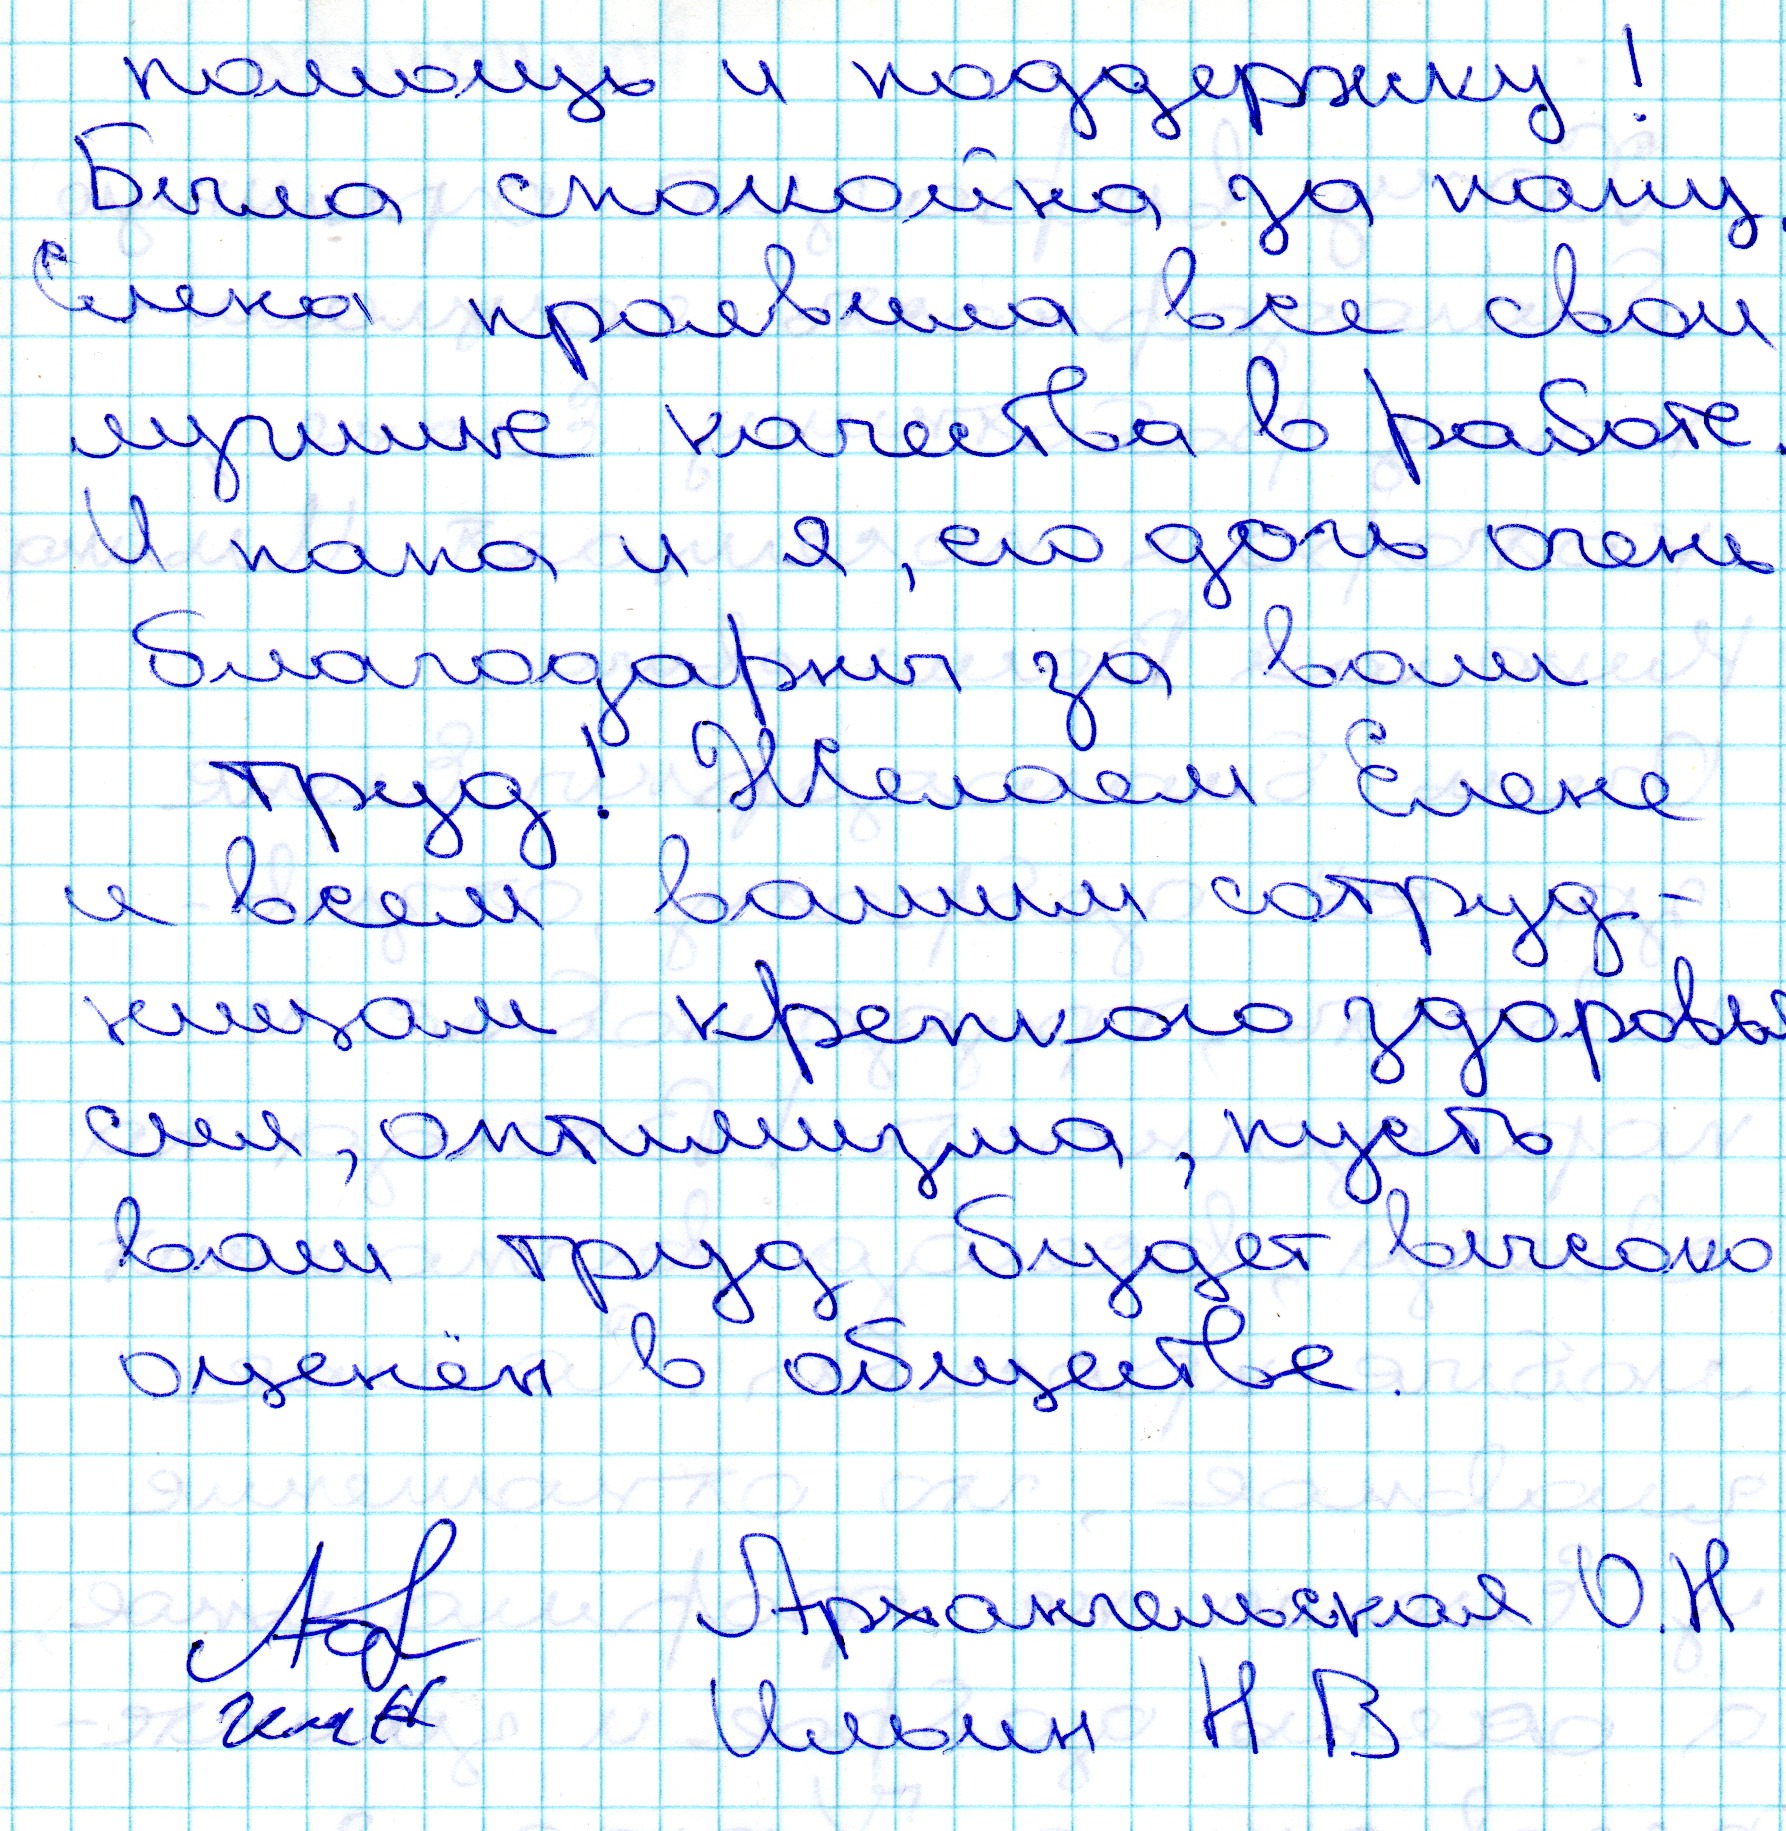 помощь и поддержку!
Была спокойна за папу.
Елена проявила все свои
лучшие качества в работе.
И папа и я, его дочь очень
благодарны за ваш
труд! Желаем Елене
и всем вашим сотруд-
ницам крепкого здоровья
сил, оптимизма, пусть
ваш труд будет высоко
оценён в обществе.
Архангельская О.Н
Ильин Н В